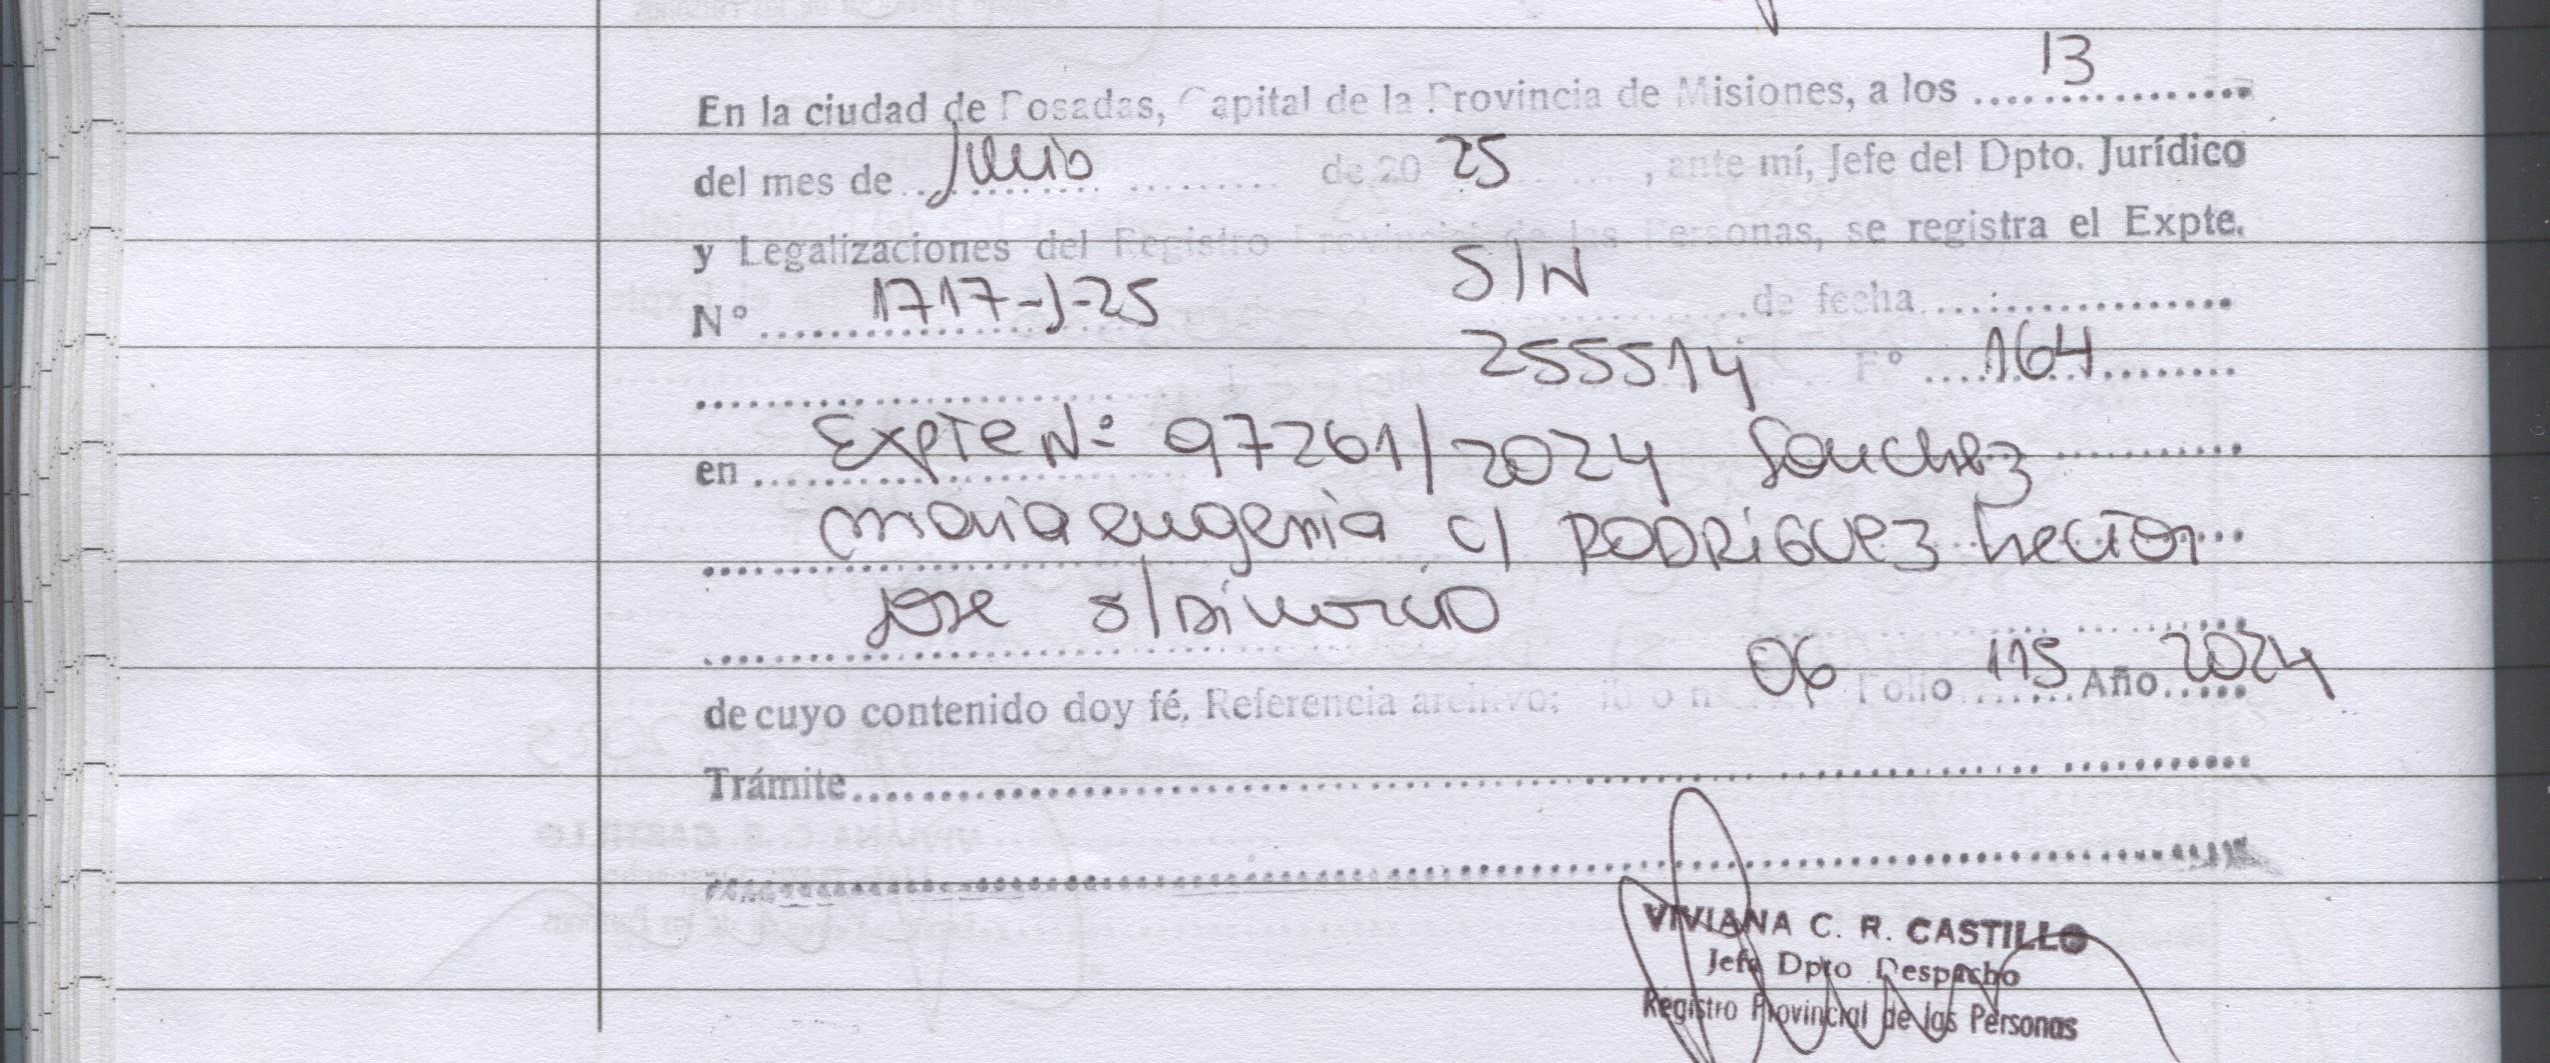 En la ciudad de Posadas, Capital de la Provincia de Misiones, a los 13
del mes de Junio de 20 25, ante mí, Jefe del Dpto. Jurídico
y Legalizaciones del Registro Provincial de las Personas, se registra el Expte.
N° 1717-J-25 S/N de fecha
255514 F° 164
en Expte N° 97261/2024 Sanchez
Maria eugenia c/ RODRiGUez hector
Jose s/Divorcio
de cuyo contenido doy fé. Referencia archivo: libro n° 06 Folio 115 Año 2024
Trámite
VIVIANA C. R. CASTILLO
Jefe Dpto Despacho
Registro Provincial de las Personas